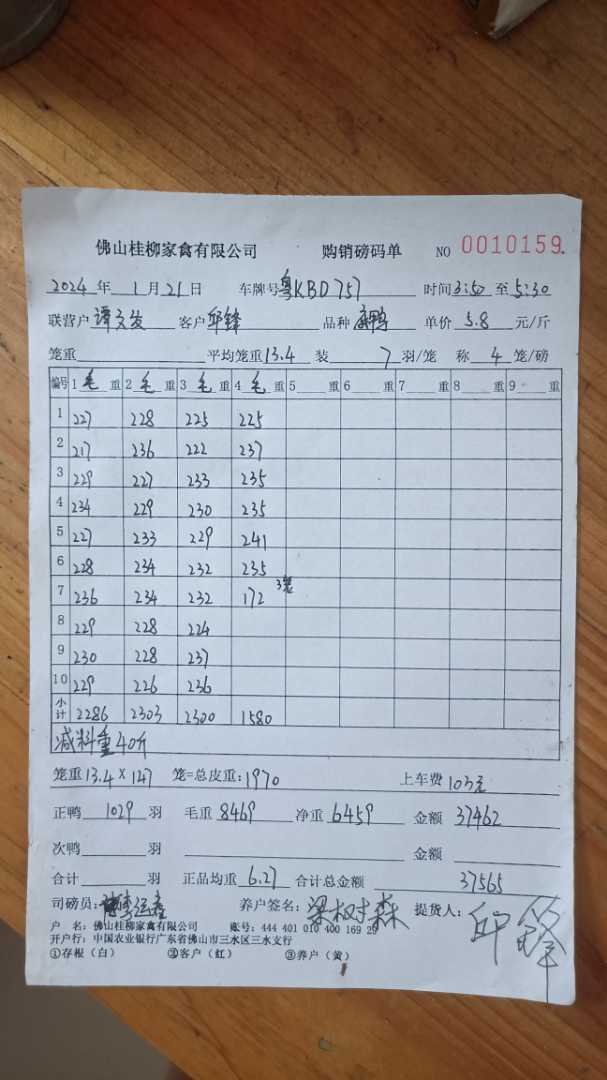 佛山桂柳家禽有限公司 购销磅码单 NO 0010159.
2024 年 1 月 21 日 车牌号 粤KBD757 时间 3:50 至 5:30
联营户 谭文发 客户 邱锋 品种 麻鸭 单价 5.8 元/斤
笼重 平均笼重 13.4 装 7 羽/笼 称 4 笼/磅
编号 1 毛 重 2 毛 重 3 毛 重 4 毛 重 5 重 6 重 7 重 8 重 9 重
1 227 228 225 225
2 217 236 222 237
3 229 227 233 235
4 234 229 230 235
5 227 233 229 241
6 228 234 232 235
7 236 234 232 172 3笼
8 229 228 224
9 230 228 237
10 229 226 236
小计 2286 2303 2300 1580
减料重40斤
笼重 13.4 × 147 笼=总皮重: 1970 上车费 103元
正鸭 1029 羽 毛重 8469 净重 6459 金额 37462
次鸭 羽 金额
合计 羽 正品均重 6.27 合计总金额 37565
司磅员: 养户签名: 梁树森 提货人: 邱锋
户 名: 佛山桂柳家禽有限公司 账号: 444 401 010 400 169 29
开户行: 中国农业银行广东省佛山市三水区三水支行
①存根（白） ②客户（红） ③养户（黄）